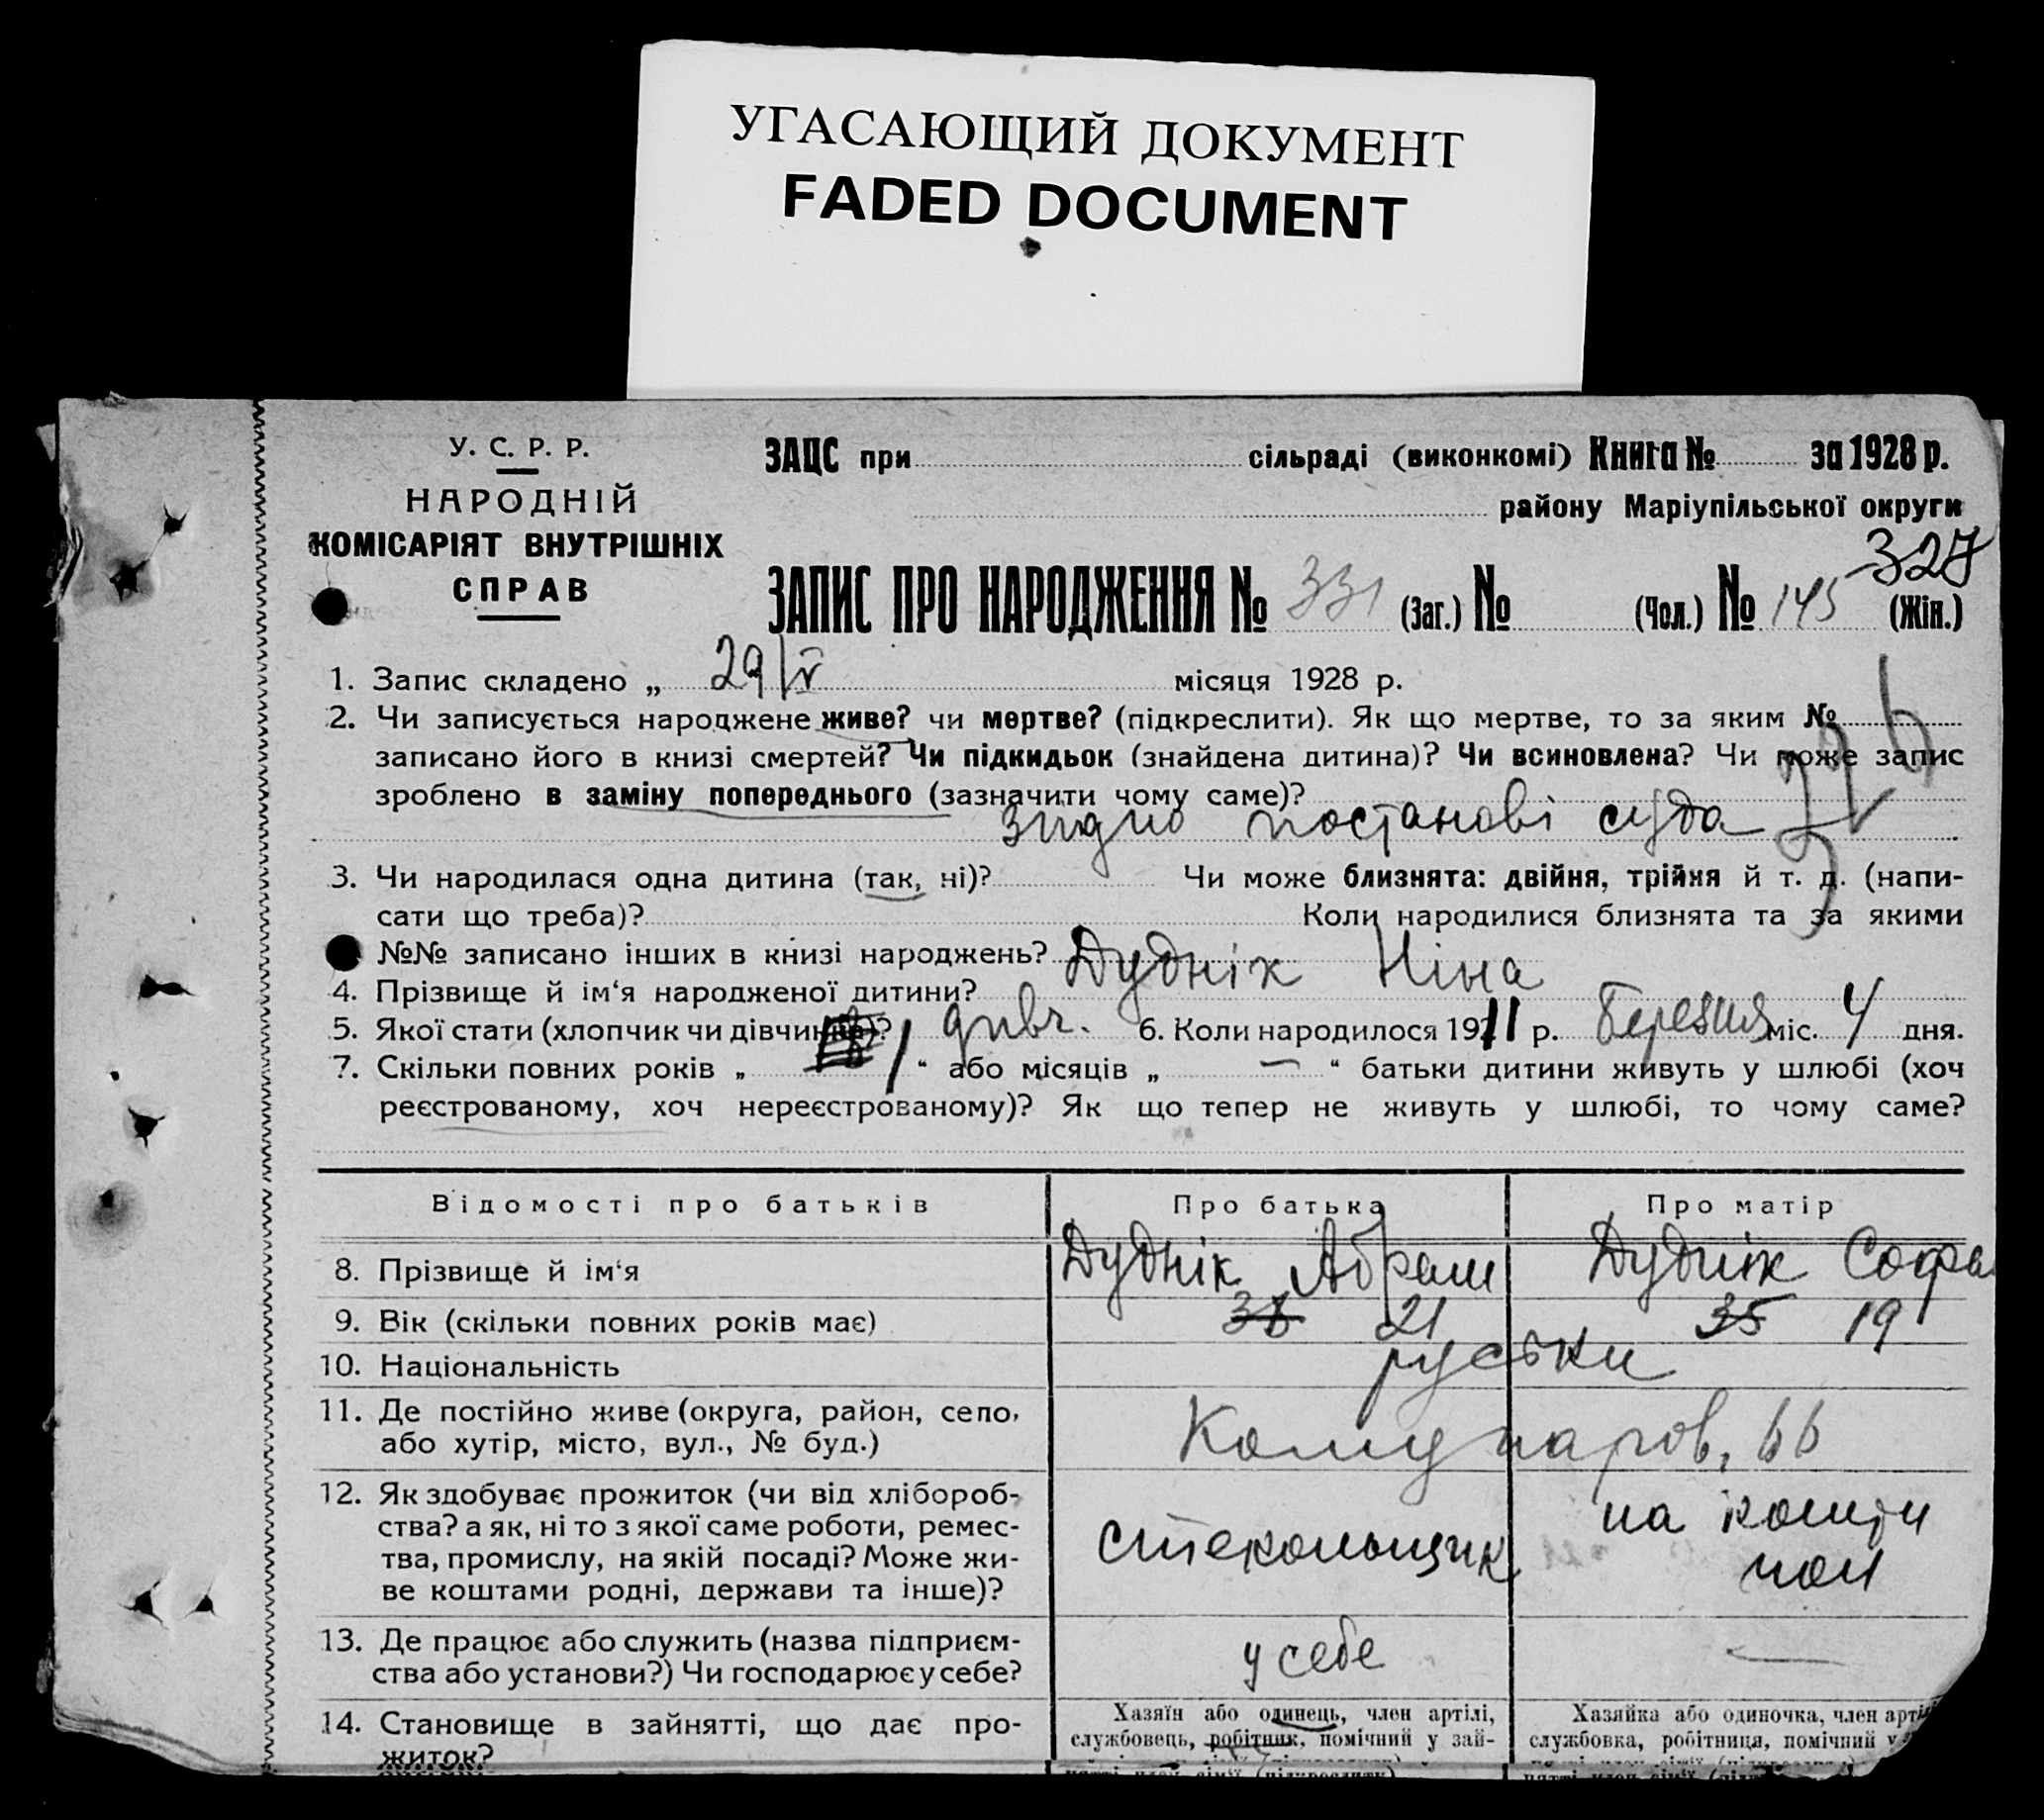 УГАСАЮЩИЙ ДОКУМЕНТ
FADED DOCUMENT
У. С. Р. Р.
НАРОДНІЙ
КОМІСАРІЯТ ВНУТРІШНІХ
СПРАВ
ЗАЦС при сільраді (виконкомі) Книга № за 1928 р.
району Маріупільської округи
327
ЗАПИС ПРО НАРОДЖЕННЯ № 331 (Заг.) № (Чол.) № 145 (Жін.)
1. Запис складено „ 29/V місяця 1928 р.
2. Чи записується народжене живе? чи мертве? (підкреслити). Як що мертве, то за яким №
записано його в книзі смертей? Чи підкидьок (знайдена дитина)? Чи всиновлена? Чи може запис
зроблено в заміну попереднього (зазначити чому саме)?
згідно постанові суда
3. Чи народилася одна дитина (так, ні)? Чи може близнята: двійня, трійня й т. д. (напи-
сати що треба)? Коли народилися близнята та за якими
№№ записано інших в книзі народжень?
4. Прізвище й ім‘я народженої дитини? Дуднік Ніна
5. Якої стати (хлопчик чи дівчинка)? дивч. 6. Коли народилося 1911 р. Березня міс. 4 дня.
7. Скільки повних років „ 1 “ або місяців „ — “ батьки дитини живуть у шлюбі (хоч
реєстрованому, хоч нереєстрованому)? Як що тепер не живуть у шлюбі, то чому саме?
Відомості про батьків Про батька Про матір
8. Прізвище й ім‘я Дуднік Абрам Дуднік Софья
9. Вік (скільки повних років має) 38 21 35 19
10. Національність руськи
11. Де постійно живе (округа, район, село,
або хутір, місто, вул., № буд.) Комунаров, 66
12. Як здобуває прожиток (чи від хлібороб-
ства? а як, ні то з якої саме роботи, ремес-
тва, промислу, на якій посаді? Може жи-
ве коштами родні, держави та інше)? стекольщик на кошти чол
13. Де працює або служить (назва підприєм-
ства або установи?) Чи господарює у себе? у себе —
14. Становище в зайнятті, що дає про-
житок?
Хазяїн або одинець, член артілі,
службовець, робітник, помічний у зай-
Хазяйка або одиночка, член арті
службовка, робітниця, помічний у